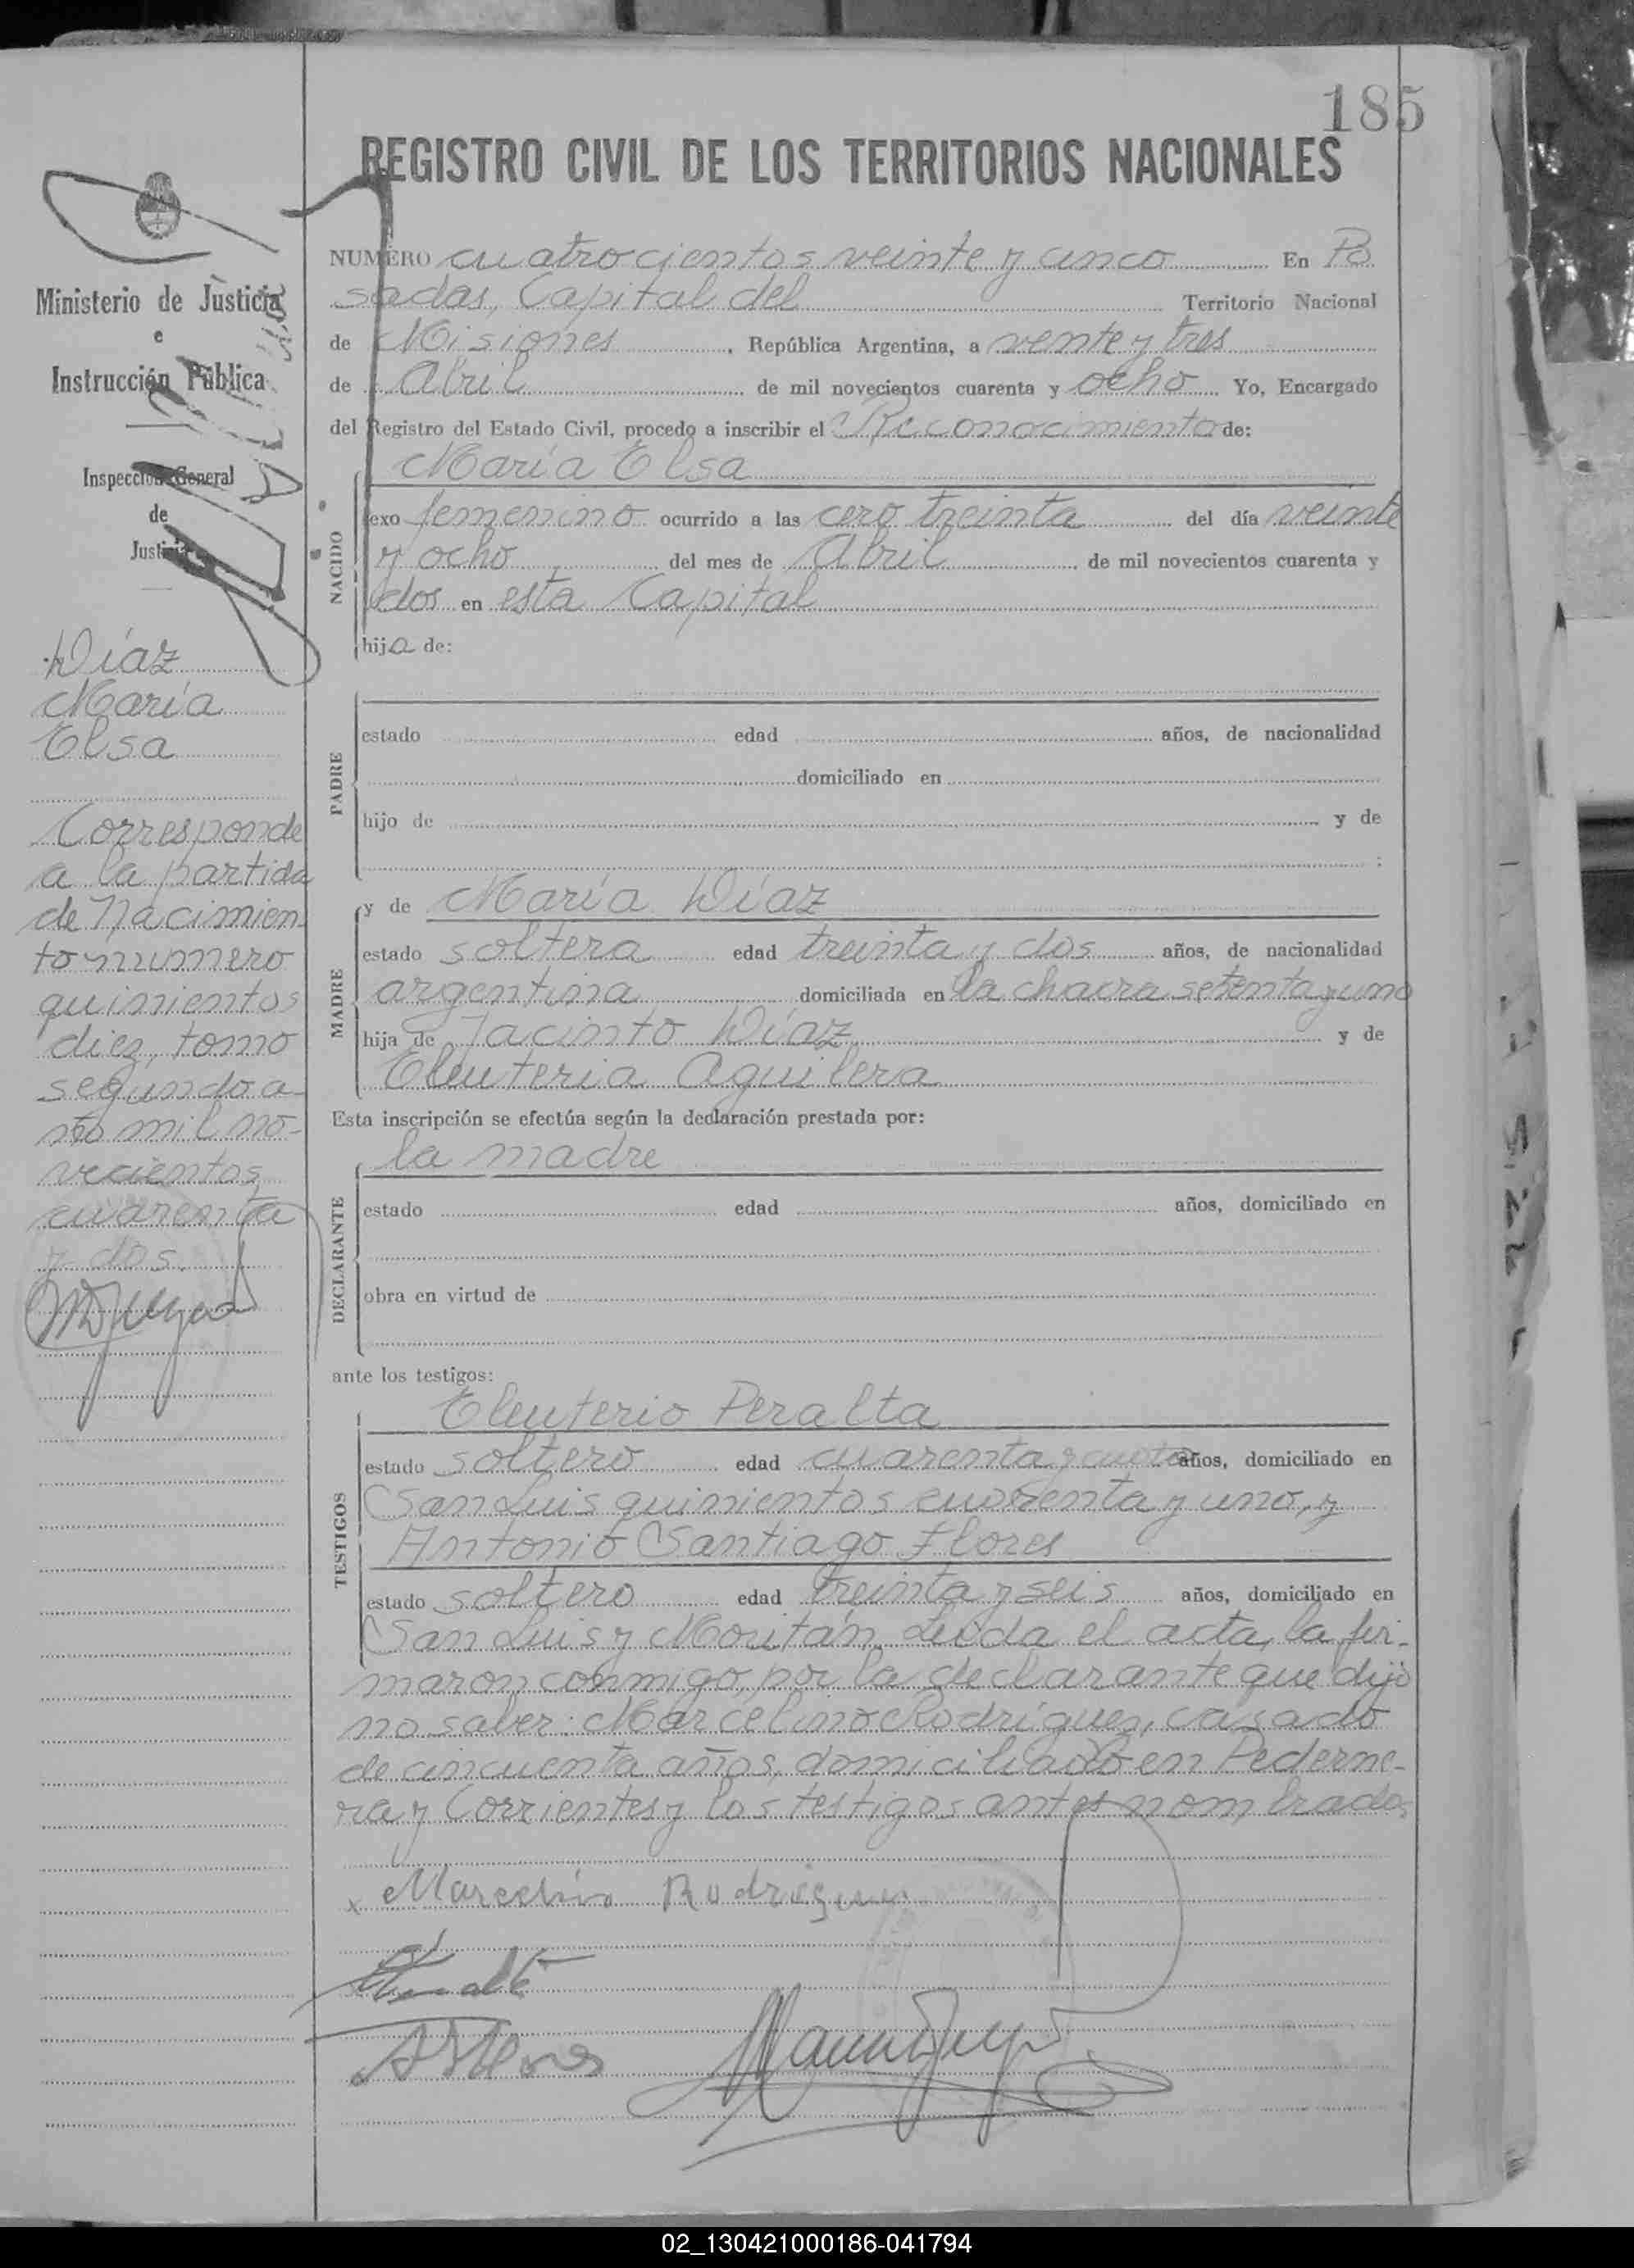 185
REGISTRO CIVIL DE LOS TERRITORIOS NACIONALES
Ministerio de Justicia
e
Instrucción Pública
Inspección General
de
Justicia
Díaz
María
Elsa
Corresponde
a la partida
de Nacimien-
to numero
quinientos
diez, tomo
segundo a-
ño mil no-
vecientos
cuarenta
y dos.
NUMERO cuatrocientos veinte y cinco En Po
sadas, Capital del Territorio Nacional
de Misiones, República Argentina, a vente y tres
de Abril de mil novecientos cuarenta y ocho Yo, Encargado
del Registro del Estado Civil, procedo a inscribir el Reconocimiento de:
María Elsa
NACIDO
sexo femenino ocurrido a las cero treinta del día veinte
y ocho del mes de Abril de mil novecientos cuarenta y
dos en esta Capital
hija de:
PADRE
estado edad años, de nacionalidad
domiciliado en
hijo de y de
;
MADRE
y de María Díaz
estado soltera edad treinta y dos años, de nacionalidad
argentina domiciliada en la chacra setenta y uno
hija de Jacinto Díaz y de
Eleuteria Aguilera
Esta inscripción se efectúa según la declaración prestada por:
la madre
DECLARANTE
estado edad años, domiciliado en
obra en virtud de
ante los testigos:
Eleuterio Peralta
TESTIGOS
estado soltero edad cuarenta y años, domiciliado en
San Luis quinientos cuarenta y uno, y
Antonio Santiago Flores
estado soltero edad treinta y seis años, domiciliado en
San Luis y Moritán. Leída el acta, la fir-
maron conmigo, por la declarante que dijo
no saber: Marcelino Rodríguez, casado
de cincuenta años, domiciliado en Pederne-
ra y Corrientes y los testigos antes nombrados
x Marcelino Rodriguez
02_130421000186-041794